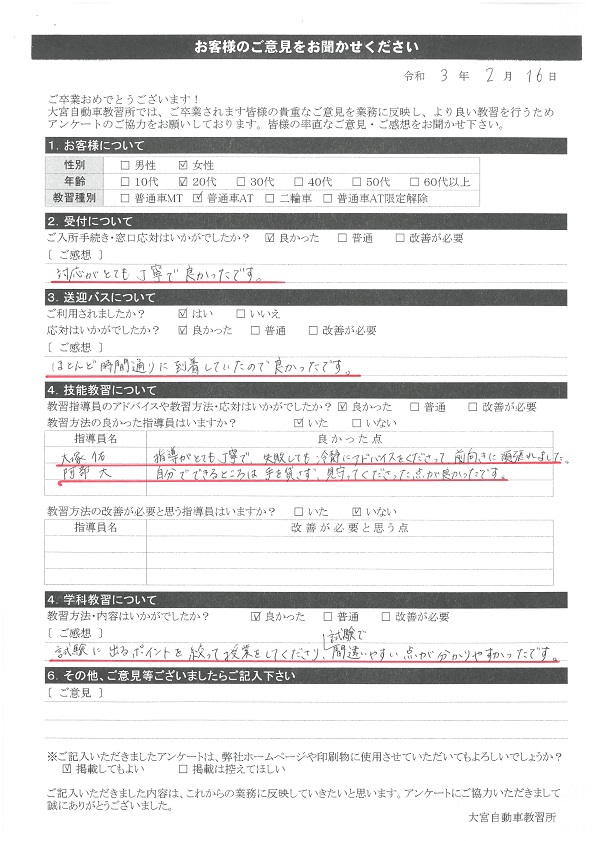 お客様のご意見をお聞かせください
令和 3 年 2 月 16 日
ご卒業おめでとうございます！
大宮自動車教習所では、ご卒業されます皆様の貴重なご意見を業務に反映し、より良い教習を行うため
アンケートのご協力をお願いしております。皆様の率直なご意見・ご感想をお聞かせ下さい。
1. お客様について
性別 □ 男性 ☑ 女性
年齢 □ 10代 ☑ 20代 □ 30代 □ 40代 □ 50代 □ 60代以上
教習種別 □ 普通車MT ☑ 普通車AT □ 二輪車 □ 普通車AT限定解除
2. 受付について
ご入所手続き・窓口応対はいかがでしたか？ ☑ 良かった □ 普通 □ 改善が必要
[ ご感想 ]
対応がとても丁寧で良かったです。
3. 送迎バスについて
ご利用されましたか？ ☑ はい □ いいえ
応対はいかがでしたか？ ☑ 良かった □ 普通 □ 改善が必要
[ ご感想 ]
ほとんど時間通りに到着していたので良かったです。
4. 技能教習について
教習指導員のアドバイスや教習方法・応対はいかがでしたか？ ☑ 良かった □ 普通 □ 改善が必要
教習方法の良かった指導員はいますか？ ☑ いた □ いない
指導員名 良かった点
大塚 佑 指導がとても丁寧で、失敗しても冷静にアドバイスをくださって前向きに頑張れました。
阿部 大 自分でできるところは手を貸さず、見守ってくださった点が良かったです。
教習方法の改善が必要と思う指導員はいますか？ □ いた ☑ いない
指導員名 改善が必要と思う点
4. 学科教習について
教習方法・内容はいかがでしたか？ ☑ 良かった □ 普通 □ 改善が必要
[ ご感想 ]
試験に出るポイントを絞って授業をしてくださり、試験で間違いやすい点が分かりやすかったです。
6. その他、ご意見等ございましたらご記入下さい
[ ご意見 ]
※ご記入いただきましたアンケートは、弊社ホームページや印刷物に使用させていただいてもよろしいでしょうか？
☑ 掲載してもよい □ 掲載は控えてほしい
ご記入いただきました内容は、これからの業務に反映していきたいと思います。アンケートにご協力いただきまして
誠にありがとうございました。
大宮自動車教習所